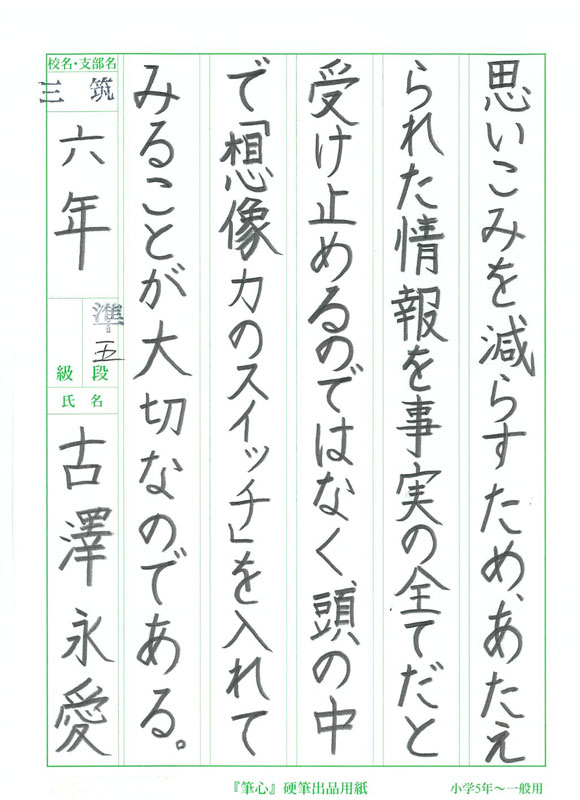 思いこみを減らすため、あたえ
られた情報を事実の全てだと
受け止めるのではなく、頭の中
で「想像力のスイッチ」を入れて
みることが大切なのである。
校名・支部名
三筑
六年
準五
級段
氏名
古澤永愛
『筆心』硬筆出品用紙
小学5年～一般用